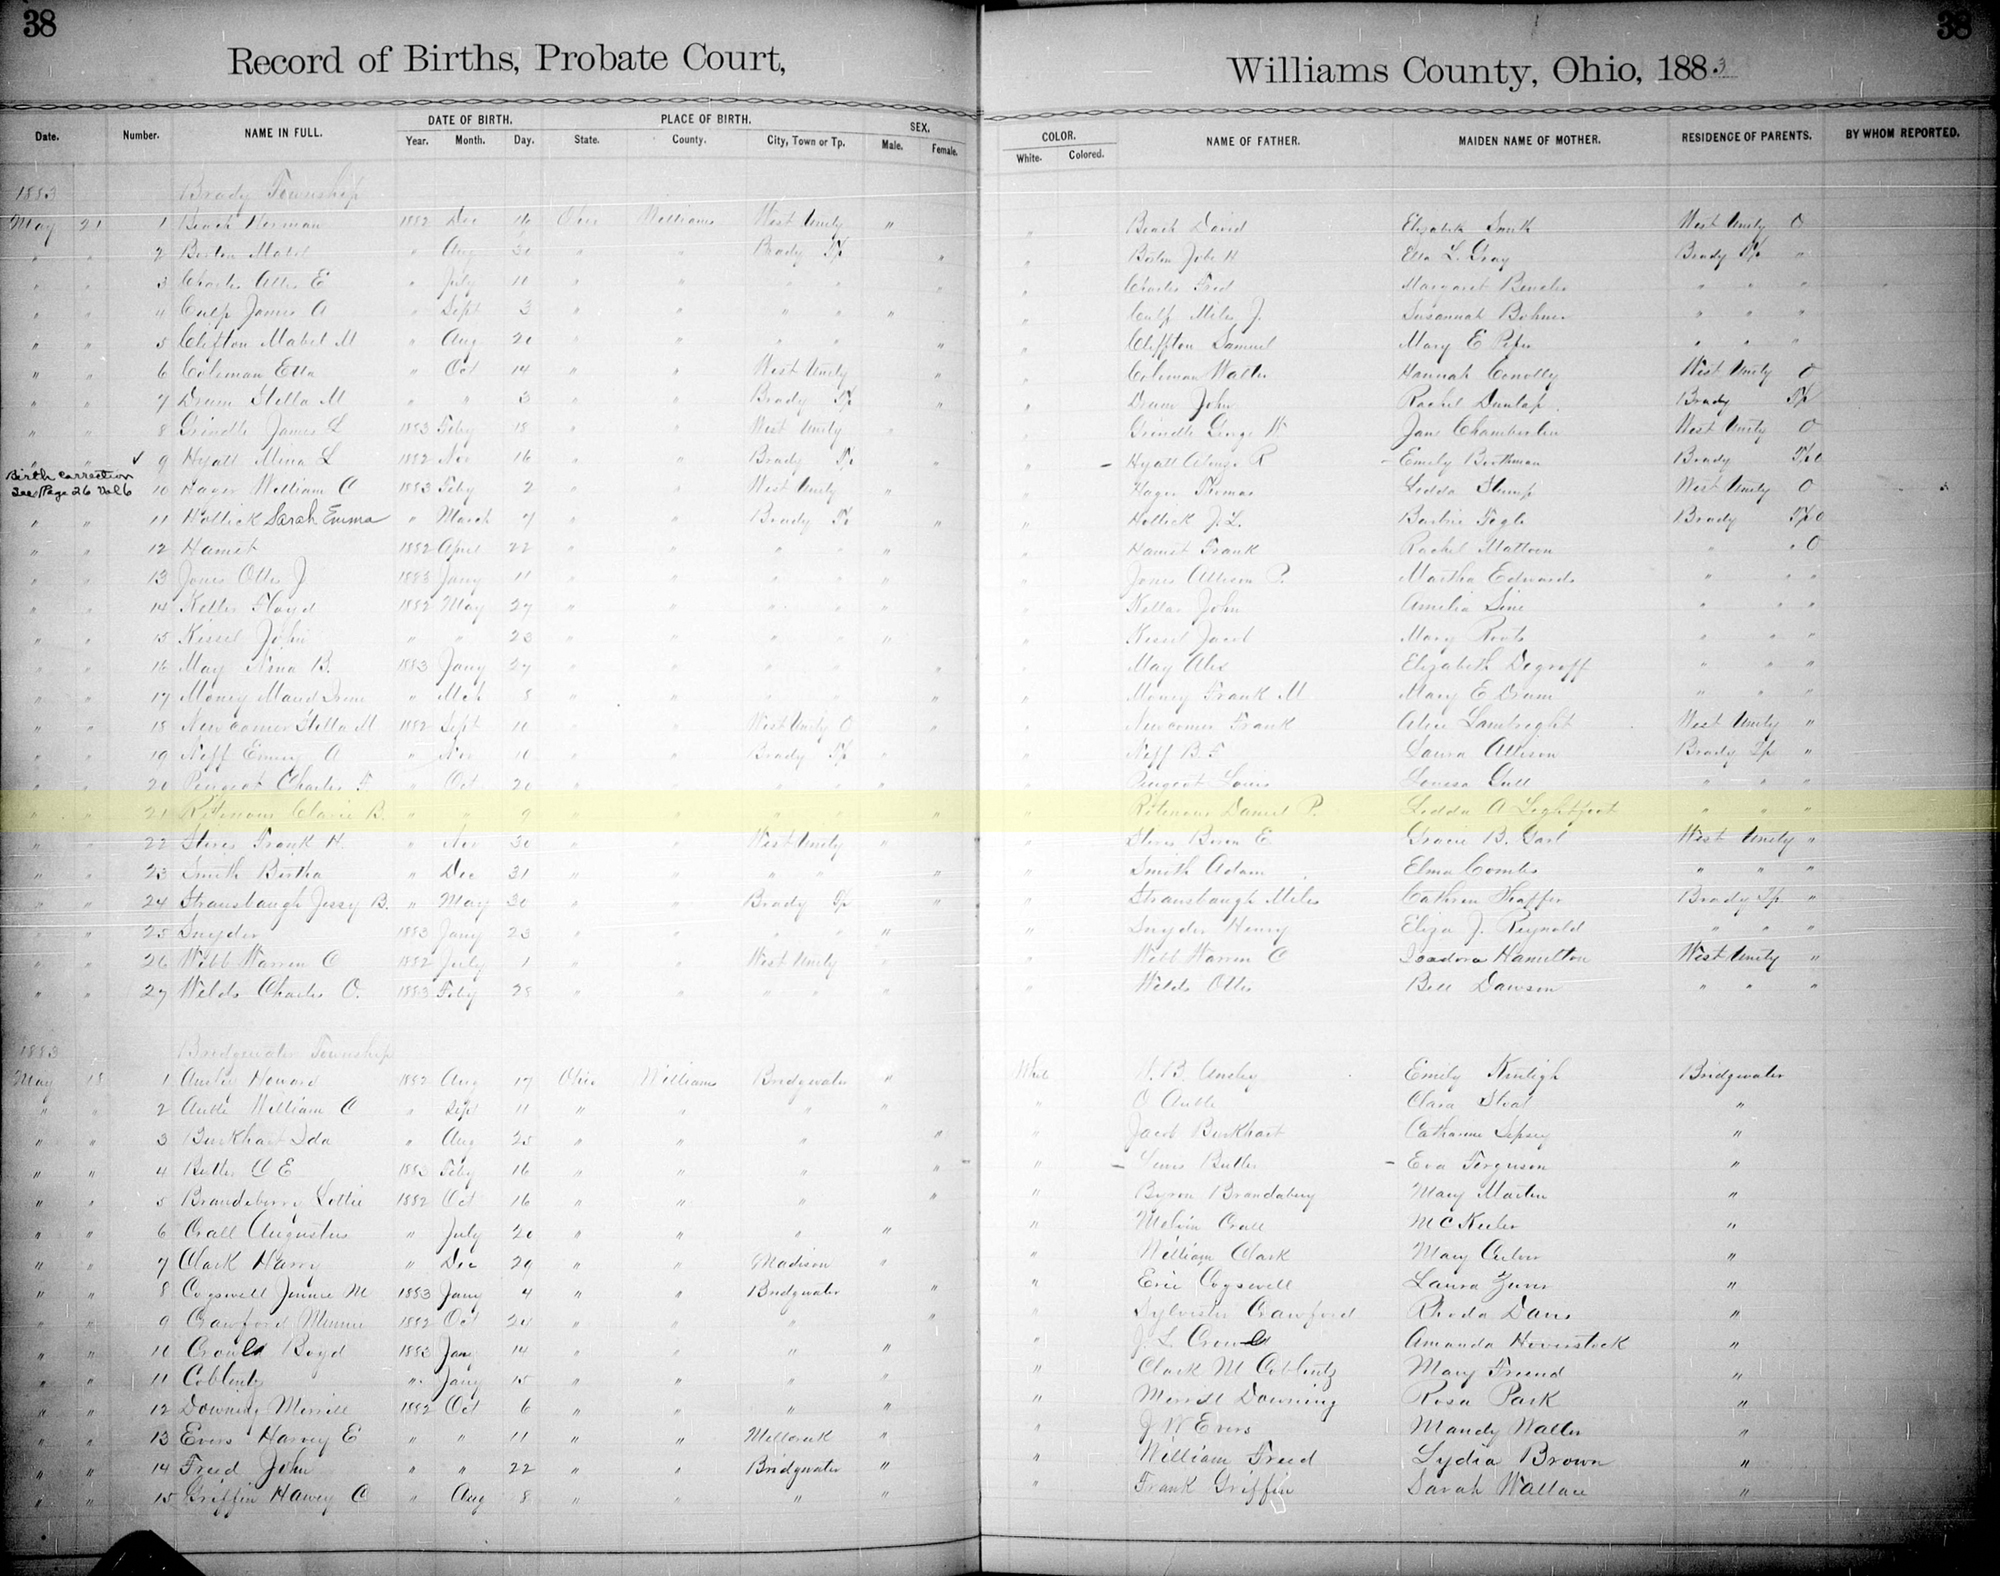 38 38
Record of Births, Probate Court, Williams County, Ohio, 1883
Date. Number. NAME IN FULL. DATE OF BIRTH. Year. Month. Day. PLACE OF BIRTH. State. County. City, Town or Tp. SEX. Male. Female. COLOR. White. Colored. NAME OF FATHER. MAIDEN NAME OF MOTHER. RESIDENCE OF PARENTS. BY WHOM REPORTED.
1883 Brady Township
May 21 1 Beach Herman 1882 Dec 16 Ohio Williams West Unity " " Beach David Elizabeth Smith West Unity O
" " 2 Mabel " Aug 30 " " Brady Tp " " Ella L. Gray Brady Tp "
" " 3 Charles E " July 10 " " " " " " Charles Fred Margaret " " "
" " 4 Culp James A " Sept 3 " " " " " " Culp Miles J. Susannah Bohner " " "
" " 5 Clifton Mabel M " Aug 20 " " " " " " Cliffton Samuel Mary E " " "
" " 6 Coleman Etta " Oct 14 " " West Unity " " Coleman Hannah Conolly West Unity O
" " 7 Drum Stella M " " 3 " " Brady Tp " " Drum John Rachel Dunlap Brady Tp
" " 8 Grindle James L 1883 Feby 18 " " West Unity " " Grindle George W Jane Chamberlin West Unity O
" " ✓ 9 Hyatt Mina L 1882 Nov 16 " " Brady Tp " " - Hyatt Alonzo R - Emily Brady Tp O
Birth correction
See Page 26 Vol 6
10 Hager William C 1883 Feby 2 " " West Unity " " Hager Thomas Stump West Unity O
" " 11 Hollick Sarah Emma " March 7 " " Brady Tp " " Hollick J. L. Fogle Brady Tp O
" " 12 1882 April 22 " " " " " " Frank Rachel Mattoon " " O
" " 13 Jones J 1883 Jany 11 " " " " " " Jones P. Martha Edwards " " "
" " 14 Floyd 1882 May 27 " " " " " " John Amelia " " "
" " 15 Kissel John " " 23 " " " " " " Kissel Jacob Mary Roots " " "
" " 16 May Nina B. 1883 Jany 27 " " " " " " May Alex Elizabeth Degroff " " "
" " 17 Money Maud " Mch 8 " " " " " " Money Frank M Mary E Drum " " "
" " 18 Newcomer Stella M 1882 Sept 10 " " West Unity O " " Newcomer Frank Alice Lambright West Unity "
" " 19 Neff A " Nov 10 " " Brady Tp " " Neff B. F Laura Allison Brady Tp "
" " 20 Charles F " Oct 20 " " " " " " Louis Gull " " "
" " 21 Ritenour B. " " 9 " " " " " " Ritenour Daniel P. A Lightfoot " " "
" " 22 Frank H. " Nov 30 " " West Unity " " E Gracie B. West Unity "
" " 23 Smith Bertha " Dec 31 " " " " " " Smith Adam Elma Combs " " "
" " 24 Strausbaugh Jessy B. " May 30 " " Brady Tp " " Strausbaugh Miles Cathren Shaffer Brady Tp "
" " 25 Snyder 1883 Jany 23 " " " " " " Snyder Henry Eliza J. Reynold " " "
" " 26 Webb Warren C 1882 July 1 " " West Unity " " Webb Warren C Isadora Hamilton West Unity "
" " 27 Welds Charles O. 1883 Feby 28 " " " " " " Welds Otto Bell Dawson " " "
1883 Bridgwater Township
May 18 1 Howard 1882 Aug 17 Ohio Williams Bridgwater " White Ansley Emily Bridgwater
" " 2 William C " Sept 11 " " " " " O Clara "
" " 3 Burkhart Ida " Aug 25 " " " " " Jacob Burkhart Catharine "
" " 4 Butler A E 1883 Feby 16 " " " " " - Lewis Butler - Eva Ferguson "
" " 5 Brandeberry Lottie 1882 Oct 16 " " " " " Byron Brandabery Mary Martin "
" " 6 Crall Augustus " July 20 " " " " " Melvin Crall "
" " 7 Clark Harry " Dec 29 " " Madison " " William Clark Mary "
" " 8 Cogswell Jennie M 1883 Jany 4 " " Bridgwater " " Cogswell Laura "
" " 9 Crawford Minnie 1882 Oct 24 " " " " " Sylvester Crawford Rhoda Davis "
" " 10 Boyd 1883 Jany 14 " " " " " J. L. Amanda "
" " 11 Coblentz " Jany 15 " " " " " Clark M Coblentz Mary Freend "
" " 12 Downing Merrill 1882 Oct 6 " " " " " Merrill Downing Rosa Park "
" " 13 Evers Harvey E " " 11 " " Millcreek " " J W Evers Mandy Waller "
" " 14 Freed John " " 22 " " Bridgwater " " William Freed Lydia Brown "
" " 15 Griffin Harvey C " Aug 8 " " " " " Frank Griffin Sarah Wallace "